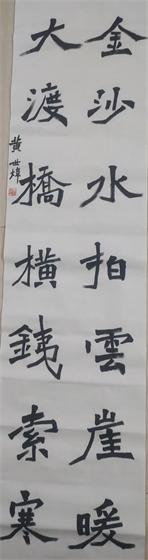 金沙水拍雲崖暖
大渡橋橫鐵索寒
黄世煒